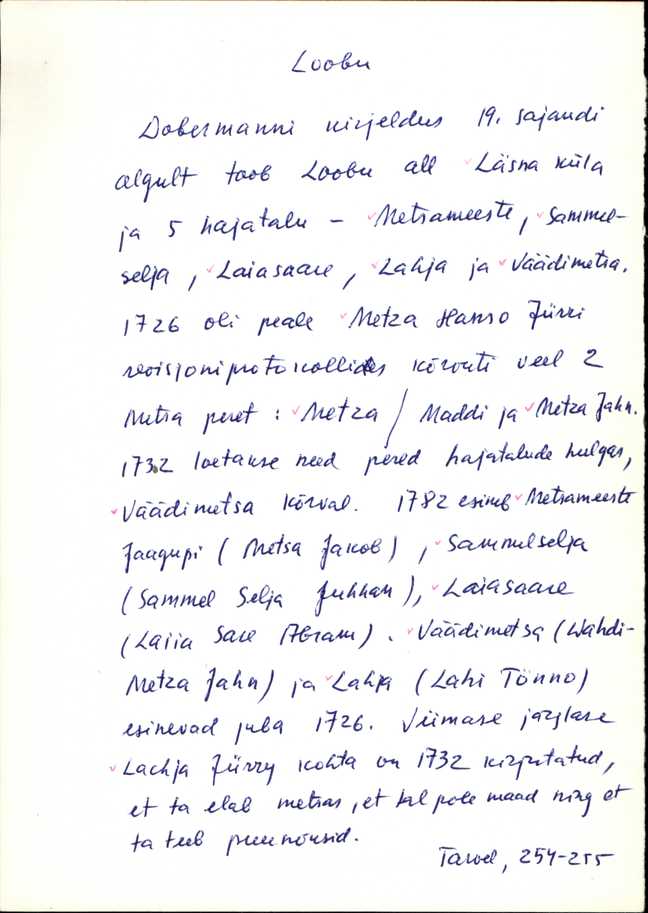 Loobu
Dobermanni kirjeldus 19. sajandi
algult toob Loobu all Läsna küla
ja 5 hajatalu – Metsameeste, Sammel-
selja, Laiasaare, Lahja ja Väädimetsa.
1726 oli peale Metza Hanso Jürri
revisjoniprotokollides kõrvuti veel 2
Metsa peret : Metza / Maddi ja Metza Jahn.
1732 loetakse need pered hajatalude hulgas,
Väädimetsa kõrval. 1782 esineb Metsameeste
Jaagupi (Metsa Jakob), Sammelselja
(Sammel Selja Juhhan), Laiasaare
(Laiia Sare Abram). Väädimetsa (Wahdi-
Metza Jahn) ja Lahja (Lahi Tönno)
esinevad juba 1726. Viimase järglase
Lachja Jürry kohta on 1732 kirjutatud,
et ta elab metsas, et tal pole maad ning et
ta teeb puunõusid.
Tarvel, 254-255